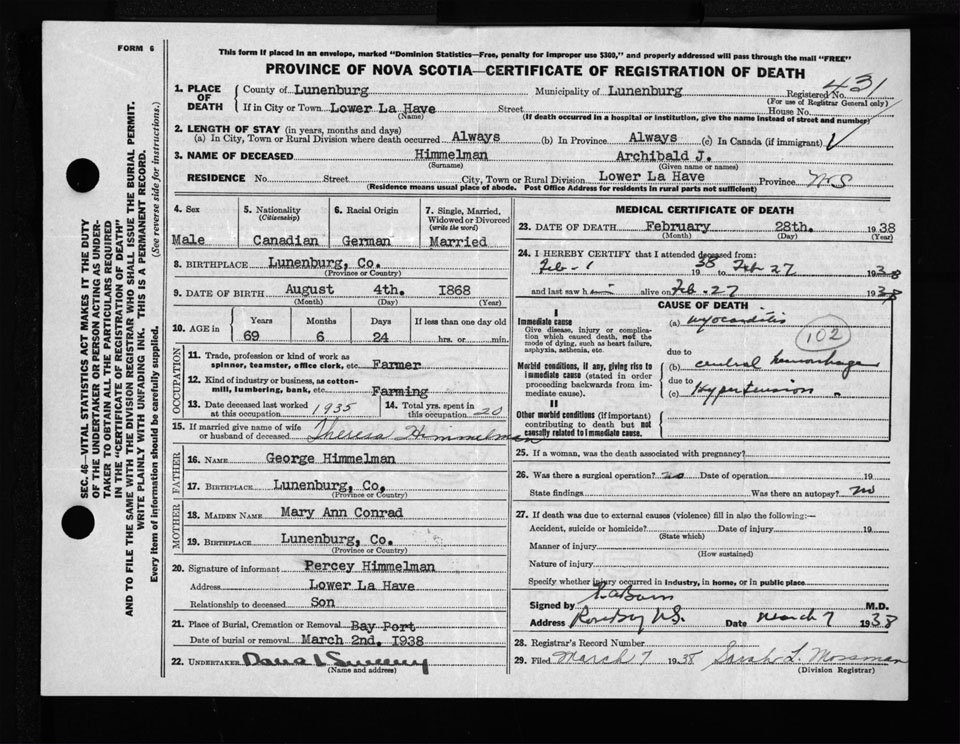 FORM 6
This form if placed in an envelope, marked "Dominion Statistics—Free, penalty for improper use $300," and properly addressed will pass through the mail "FREE"
PROVINCE OF NOVA SCOTIA—CERTIFICATE OF REGISTRATION OF DEATH
431
1. PLACE OF DEATH County of Lunenburg Municipality of Lunenburg Registered No.
(For use of Registrar General only)
If in City or Town Lower La Have Street House No.
(Name) (If death occurred in a hospital or institution, give the name instead of street and number)
2. LENGTH OF STAY (in years, months and days)
(a) In City, Town or Rural Division where death occurred Always (b) In Province Always (c) In Canada (if immigrant)
3. NAME OF DECEASED Himmelman Archibald J.
(Surname) (Given name or names)
RESIDENCE No. Street City, Town or Rural Division Lower La Have Province NS
(Residence means usual place of abode. Post Office Address for residents in rural parts not sufficient)
4. Sex 5. Nationality (Citizenship) 6. Racial Origin 7. Single, Married, Widowed or Divorced (write the word)
Male Canadian German Married
8. BIRTHPLACE Lunenburg, Co.
(Province or Country)
9. DATE OF BIRTH August 4th. 1868
(Month) (Day) (Year)
10. AGE in Years Months Days If less than one day old
69 6 24 hrs. or min.
OCCUPATION
11. Trade, profession or kind of work as spinner, teamster, office clerk, etc. Farmer
12. Kind of industry or business, as cotton-mill, lumbering, bank, etc. Farming
13. Date deceased last worked at this occupation 1935 14. Total yrs. spent in this occupation 20
15. If married give name of wife or husband of deceased Theresa Himmelman
FATHER
16. NAME George Himmelman
17. BIRTHPLACE Lunenburg, Co,
(Province or Country)
MOTHER
18. MAIDEN NAME Mary Ann Conrad
19. BIRTHPLACE Lunenburg, Co.
(Province or Country)
20. Signature of informant Percey Himmelman
Address Lower La Have
Relationship to deceased Son
21. Place of Burial, Cremation or Removal Bay Port
Date of burial or removal March 2nd. 1938
22. UNDERTAKER Dana L Sweeny
(Name and address)
MEDICAL CERTIFICATE OF DEATH
23. DATE OF DEATH February 28th. 1938
(Month) (Day) (Year)
24. I HEREBY CERTIFY that I attended deceased from:
Feb - 1 1938 to Feb 27 1938
and last saw him alive on Feb - 27 1938
CAUSE OF DEATH
I
Immediate cause
Give disease, injury or complication which caused death, not the mode of dying, such as heart failure, asphyxia, asthenia, etc.
(a) Myocarditis
102
due to
Morbid conditions, if any, giving rise to immediate cause (stated in order proceeding backwards from immediate cause).
(b) cerebral hemorrhage
due to
(c) Hypertension
II
Other morbid conditions (if important) contributing to death but not causally related to immediate cause.
25. If a woman, was the death associated with pregnancy?
26. Was there a surgical operation? no Date of operation 19
State findings Was there an autopsy? no
27. If death was due to external causes (violence) fill in also the following:—
Accident, suicide or homicide? Date of injury 19
(State which)
Manner of injury
(How sustained)
Nature of injury
Specify whether injury occurred in industry, in home, or in public place
Signed by M.D.
Address Rose Bay N.S. Date March 7 1938
28. Registrar's Record Number
29. Filed March 7 1938 Sarah L. Mossman
(Division Registrar)
SEC. 46—VITAL STATISTICS ACT MAKES IT THE DUTY
OF THE UNDERTAKER OR PERSON ACTING AS UNDER-
TAKER TO OBTAIN ALL THE PARTICULARS REQUIRED
IN THE "CERTIFICATE OF REGISTRATION OF DEATH"
AND TO FILE THE SAME WITH THE DIVISION REGISTRAR WHO SHALL ISSUE THE BURIAL PERMIT.
WRITE PLAINLY WITH UNFADING INK. THIS IS A PERMANENT RECORD.
Every item of information should be carefully supplied. (See reverse side for instructions.)